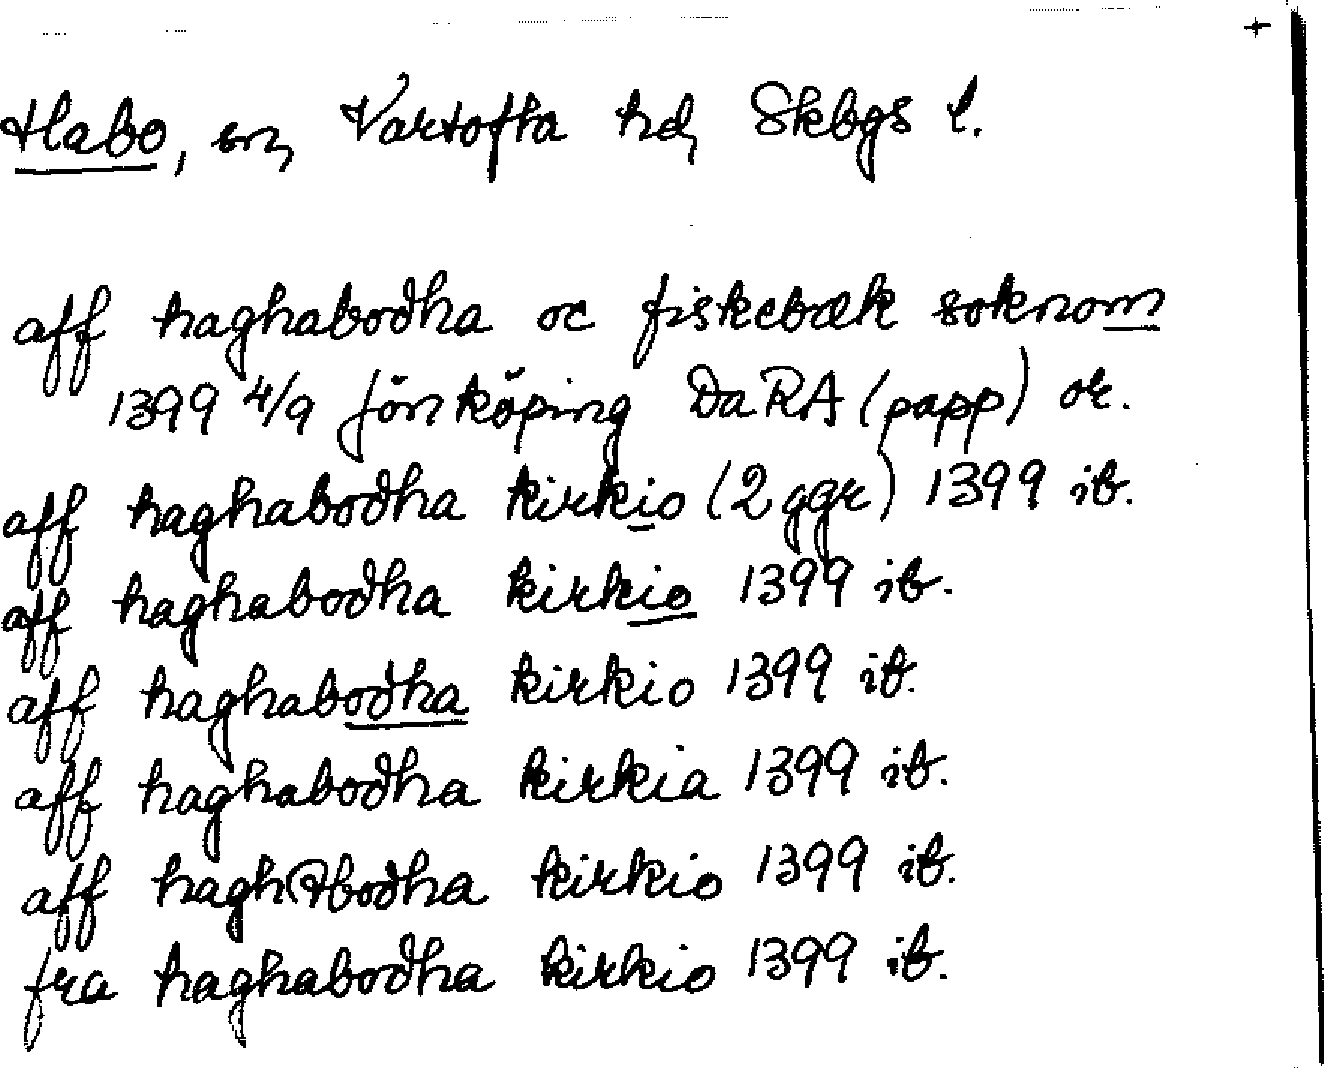 Habo, sn, Vartofta hd, Skbgs l.
aff haghabodha oc fiskebæk soknom
1399 4/9 Jönköping DaRA (papp) or.
aff haghabodha kirkio (2 ggr) 1399 ib.
aff haghabodha kirkio 1399 ib.
aff haghabodha kirkio 1399 ib.
aff haghabodha kirkia 1399 ib.
aff haghabodha kirkio 1399 ib.
fra haghabodha kirkio 1399 ib.